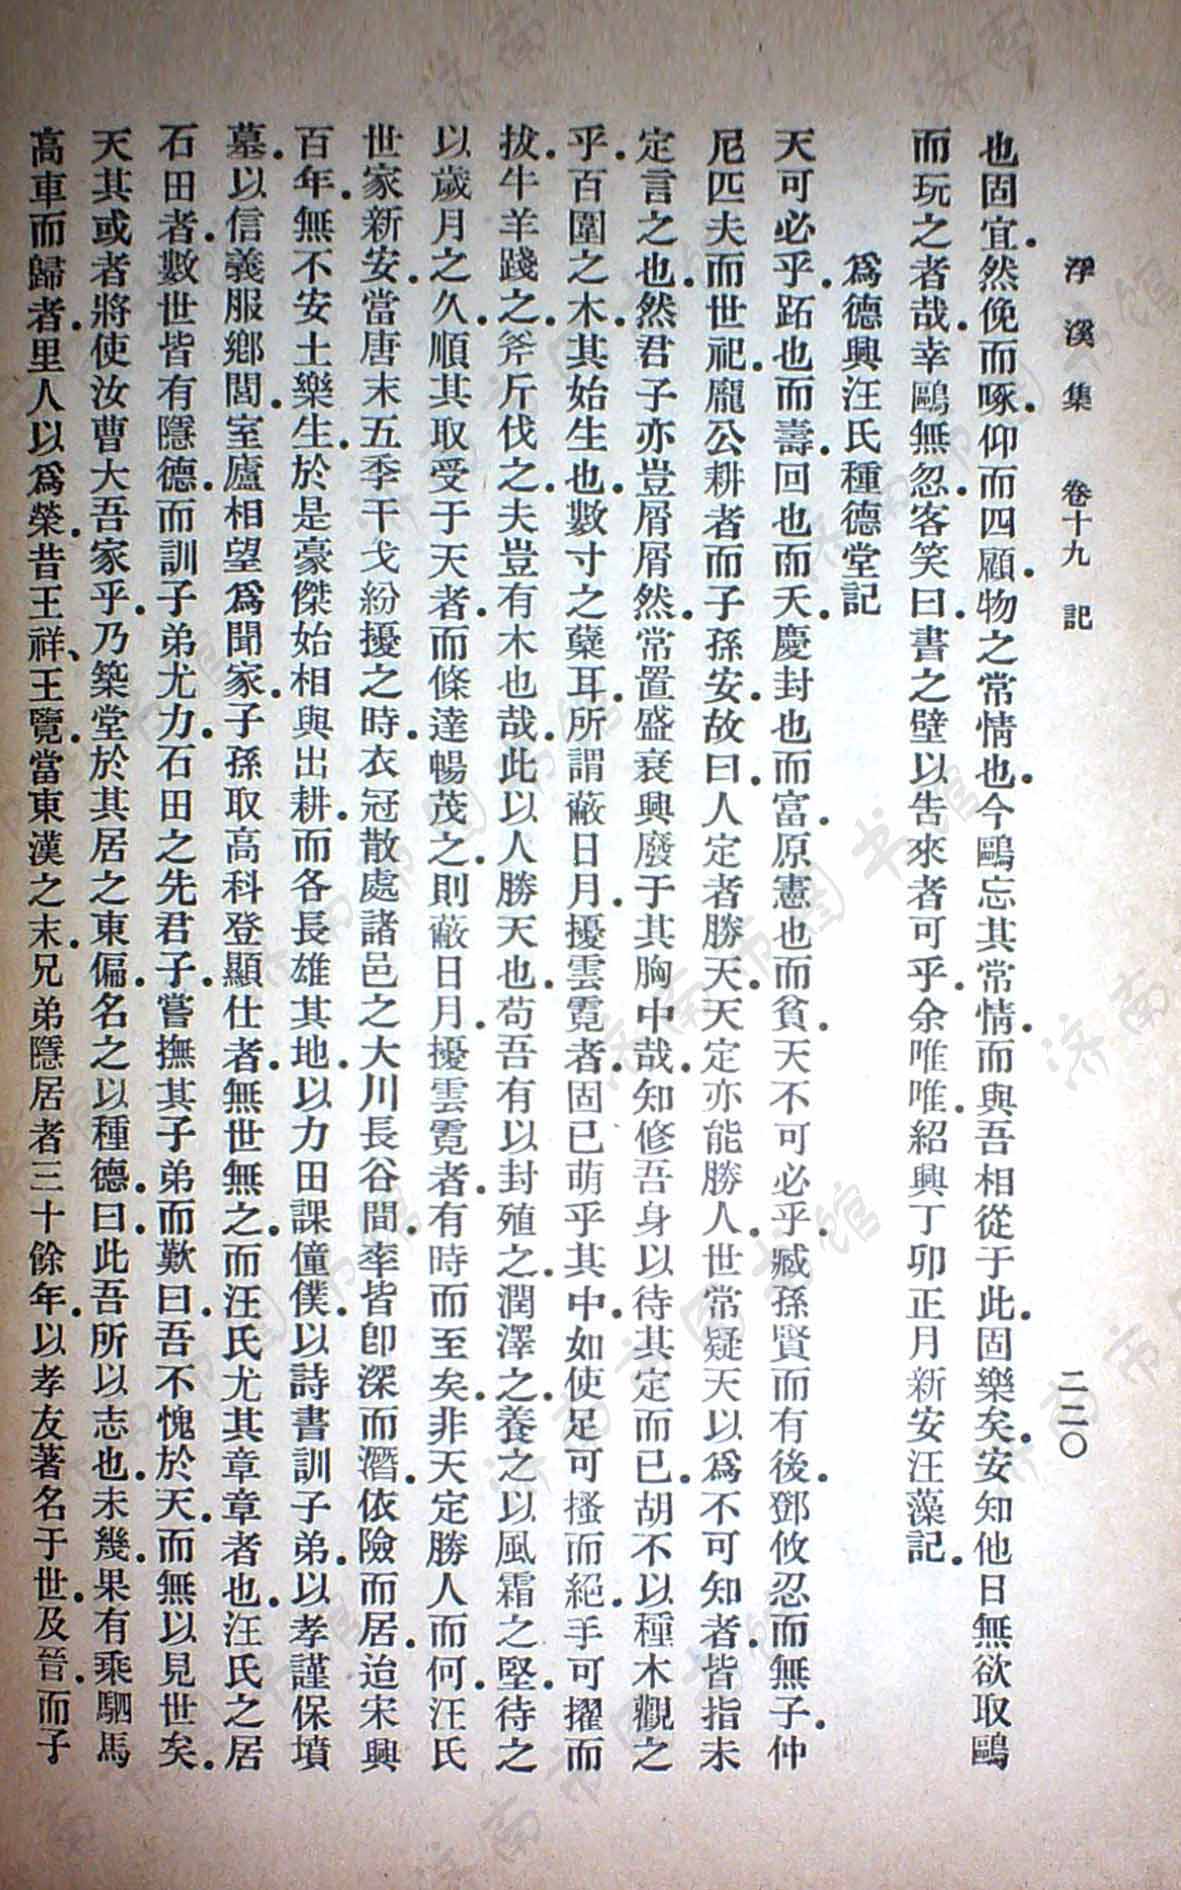 浮溪集 卷十九 記 二二〇
也固宜.然俛而啄.仰而四顧.物之常情也.今鷗忘其常情.而與吾相從于此.固樂矣.安知他日無欲取鷗
而玩之者哉.幸鷗無忽.客笑曰.書之壁以告來者可乎.余唯唯.紹興丁卯正月新安汪藻記.
爲德興汪氏種德堂記
天可必乎.跖也而壽.回也而夭.慶封也而富.原憲也而貧.天不可必乎.臧孫賢而有後.鄧攸忍而無子.仲
尼匹夫而世祀.龐公耕者而子孫安.故曰.人定者勝天.天定亦能勝人.世常疑天以爲不可知者.皆指未
定言之也.然君子亦豈屑屑然.常置盛衰興廢于其胸中哉.知修吾身以待其定而已.胡不以種木觀之
乎.百圍之木.其始生也.數寸之蘖耳.所謂蔽日月.擾雲霓者.固已萌乎其中.如使足可搔而絕.手可擢而
拔.牛羊踐之.斧斤伐之.夫豈有木也哉.此以人勝天也.苟吾有以封殖之.潤澤之.養之以風霜之堅.待之
以歲月之久.順其取受于天者.而條達暢茂之.則蔽日月.擾雲霓者.有時而至矣.非天定勝人而何.汪氏
世家新安.當唐末五季干戈紛擾之時.衣冠散處諸邑之大川長谷間.率皆卽深而潛.依險而居.迨宋興
百年.無不安土樂生.於是豪傑始相與出耕.而各長雄其地.以力田課僮僕.以詩書訓子弟.以孝謹保墳
墓.以信義服鄉閭.室廬相望爲聞家.子孫取高科登顯仕者.無世無之.而汪氏尤其章章者也.汪氏之居
石田者.數世皆有隱德.而訓子弟尤力.石田之先君子.嘗撫其子弟而歎曰.吾不愧於天.而無以見世矣.
天其或者將使汝曹大吾家乎.乃築堂於其居之東偏.名之以種德.曰.此吾所以志也.未幾.果有乘駟馬
高車而歸者.里人以爲榮.昔王祥、王覽.當東漢之末.兄弟隱居者三十餘年.以孝友著名于世.及晉.而子